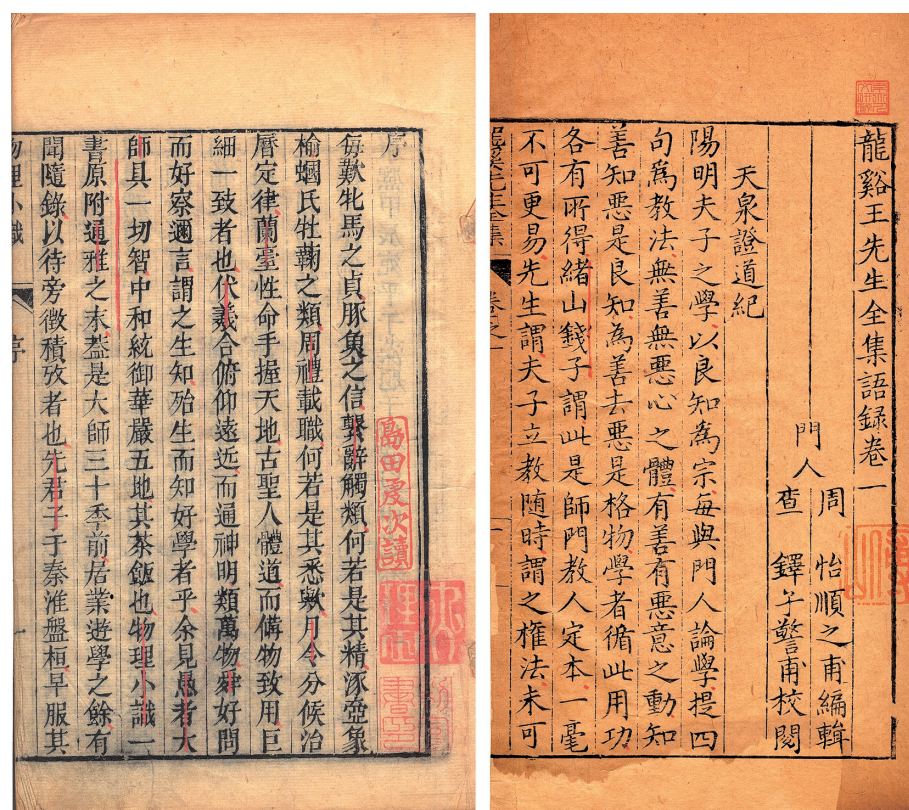 序
每歎牝馬之貞豚魚之信繫辭觸類何若是其精涿壺象
榆蟈氏牡蘜之類周禮載職何若是其悉歟月令分候治
曆定律蘭臺性命手握天地古聖人體道而備物致用巨
細一致者也伏羲合俯仰遠近而通神明類萬物舜好問
而好察邇言謂之生知殆生而知好學者乎余見愚者大
師具一切智中和統御華嚴五地其茶飯也物理小識一
書原附通雅之末葢是大師三十季前居業遊學之餘有
聞隨錄以待旁徵積攷者也先君子于秦淮盤桓早服其
物理小識 序 一
龍谿王先生全集語錄卷一
門人
周 怡順之甫編輯
查 鐸子警甫校閱
天泉證道紀
陽明夫子之學以良知為宗每與門人論學提四
句為教法無善無惡心之體有善有惡意之動知
善知惡是良知為善去惡是格物學者循此用功
各有所得緒山錢子謂此是師門教人定本一毫
不可更易先生謂夫子立教隨時謂之權法未可
龍谿先生全集 卷之一 一